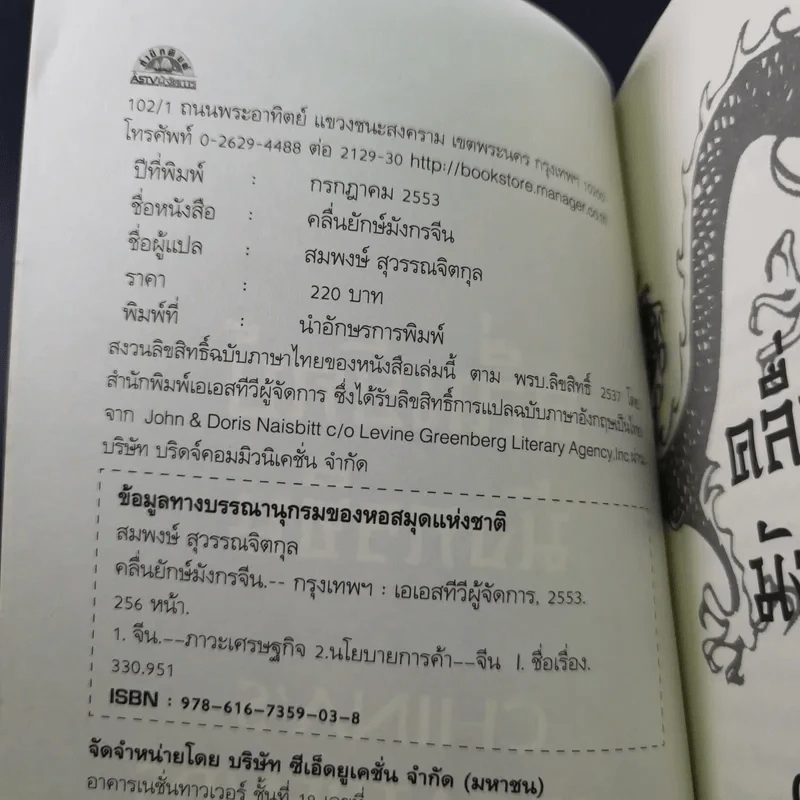 สำนักพิมพ์
ASTVผู้จัดการ
102/1 ถนนพระอาทิตย์ แขวงชนะสงคราม เขตพระนคร กรุงเทพฯ 10200
โทรศัพท์ 0-2629-4488 ต่อ 2129-30 http://bookstore.manager.co.th
ปีที่พิมพ์ : กรกฎาคม 2553
ชื่อหนังสือ : คลื่นยักษ์มังกรจีน
ชื่อผู้แปล : สมพงษ์ สุวรรณจิตกุล
ราคา : 220 บาท
พิมพ์ที่ : นำอักษรการพิมพ์
สงวนลิขสิทธิ์ฉบับภาษาไทยของหนังสือเล่มนี้ ตาม พรบ.ลิขสิทธิ์ 2537 โดย
สำนักพิมพ์เอเอสทีวีผู้จัดการ ซึ่งได้รับลิขสิทธิ์การแปลฉบับภาษาอังกฤษเป็นไทย
จาก John & Doris Naisbitt c/o Levine Greenberg Literary Agency,Inc.ผ่าน
บริษัท บริดจ์คอมมิวนิเคชั่น จำกัด
ข้อมูลทางบรรณานุกรมของหอสมุดแห่งชาติ
สมพงษ์ สุวรรณจิตกุล
คลื่นยักษ์มังกรจีน.-- กรุงเทพฯ : เอเอสทีวีผู้จัดการ, 2553.
256 หน้า.
1. จีน.--ภาวะเศรษฐกิจ 2.นโยบายการค้า--จีน I. ชื่อเรื่อง.
330.951
ISBN : 978-616-7359-03-8
จัดจำหน่ายโดย บริษัท ซีเอ็ดยูเคชั่น จำกัด (มหาชน)
อาคารเนชั่นทาวเวอร์ ชั้นที่ 19